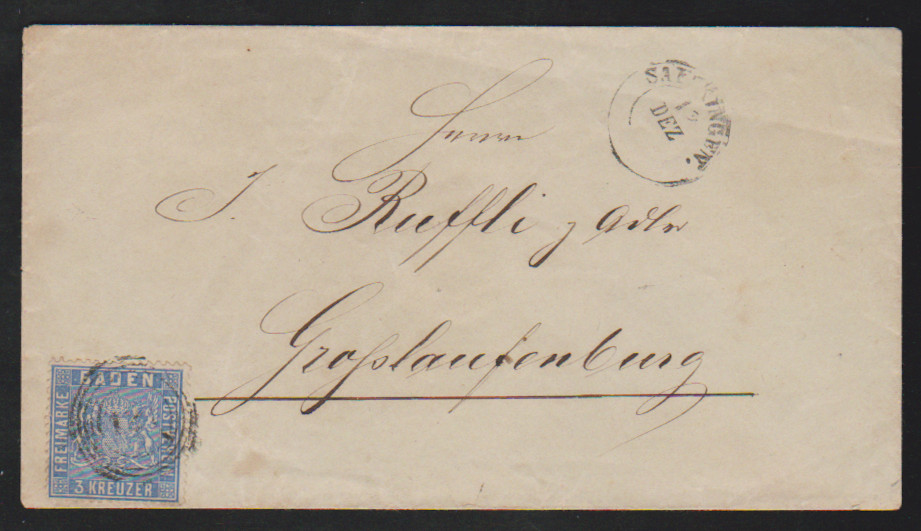 SAECKINGEN.
12
DEZ
Herrn
J. Rueffli z Adler
Großlaufenburg
BADEN
FREIMARKE
POSTVEREIN
3 KREUZER